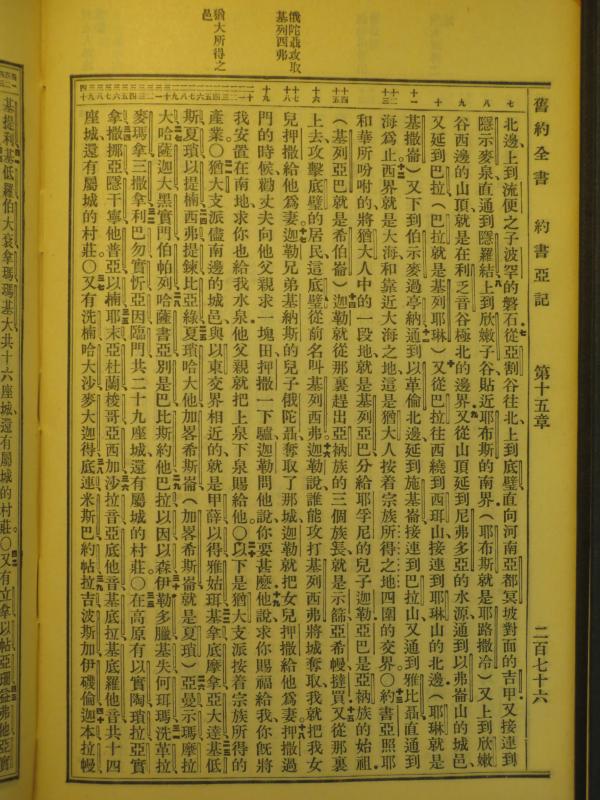 舊約全書 約書亞記 第十五章 二百七十六
俄陀聶攻取
基列西弗
猶大所得之
邑
七 八 九 十 十一 十二 十三 十四 十五 十六 十七 十八 十九 二十
北邊上到流便之子波罕的磐石從亞割谷往北上到底璧直向河南亞都冥坡對面的吉甲又接連到
隱示麥泉直通到隱羅結上到欣嫩子谷貼近耶布斯的南界（耶布斯就是耶路撒冷）又上到欣嫩
谷西邊的山頂就是在利乏音谷極北的邊界又從山頂延到尼弗多亞的水源通到以弗崙山的城邑
又延到巴拉（巴拉就是基列耶琳）又從巴拉往西繞到西珥山接連到耶琳山的北邊（耶琳就是
基撒崙）又下到伯示麥過亭納通到以革倫北邊延到施基崙接連到巴拉山又通到雅比聶直通到
海為止西界就是大海和靠近大海之地這是猶大人按着宗族所得之地四圍的交界〇約書亞照耶
和華所吩咐的將猶大人中的一段地就是基列亞巴分給耶孚尼的兒子迦勒亞巴是亞衲族的始祖
（基列亞巴就是希伯崙）迦勒就從那裏趕出亞衲族的三個族長就是示篩亞希幔撻買又從那裏
上去攻擊底璧的居民這底璧從前名叫基列西弗迦勒說誰能攻打基列西弗將城奪取我就把我女
兒押撒給他為妻迦勒兄弟基納斯的兒子俄陀聶奪取了那城迦勒就把女兒押撒給他為妻押撒過
門的時候勸丈夫向他父親求一塊田押撒一下驢迦勒問他說你要甚麼他說求你賜福給我你旣將
我安置在南地求你也給我水泉他父親就把上泉下泉賜給他〇以下是猶大支派按着宗族所得的
產業〇猶大支派儘南邊的城邑與以東交界相近的就是甲薛以得雅姑珥基拿底摩拿亞大達基低
斯夏瑣以提楠西弗提鍊比亞綠夏瑣哈大他加畧希斯崙（加畧希斯崙就是夏瑣）亞曼示瑪摩拉
大哈薩迦大黑實門伯帕列哈薩書亞別是巴比斯約他巴拉以因以森伊勒多臘基失何珥瑪洗革拉
麥瑪拿三撒拿利巴勿實忻亞因臨門共二十九座城還有屬城的村莊〇在高原有以實陶瑣拉亞實
拿撒挪亞隱干寧他普亞以楠耶末亞杜蘭梭哥亞西加沙拉音亞底他音基底拉基底羅他音共十四
座城還有屬城的村莊〇又有洗楠哈大沙麥大迦得底連米斯巴約帖拉吉波斯加伊磯倫迦本拉幔
基提利基低羅伯大袞拿瑪瑪基大共十六座城還有屬城的村莊〇又有立拿以帖亞珊益弗他亞實